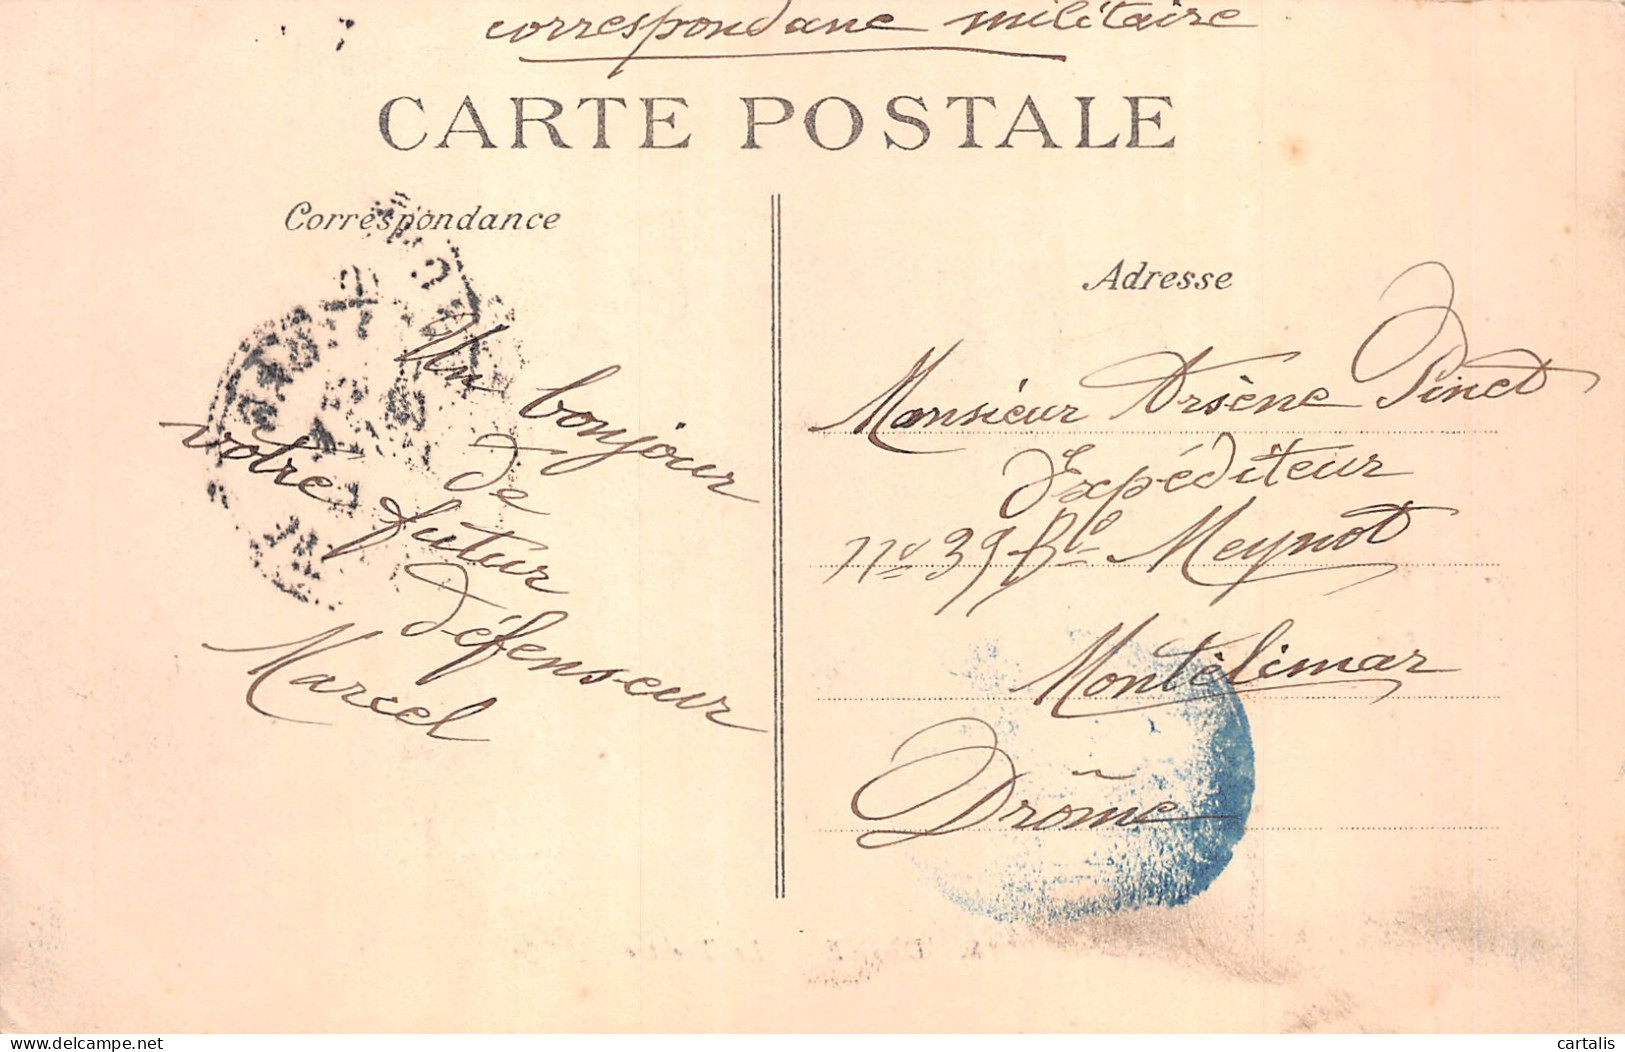 correspondane militaire
CARTE POSTALE
Correspondance
Un bonjour
de
votre futur
défenseur
Marcel
Adresse
Monsieur Arsène Pinet
Expéditeur
no 39 Bd Meynot
Montélimar
Drôme
delcampe.net
cartalis